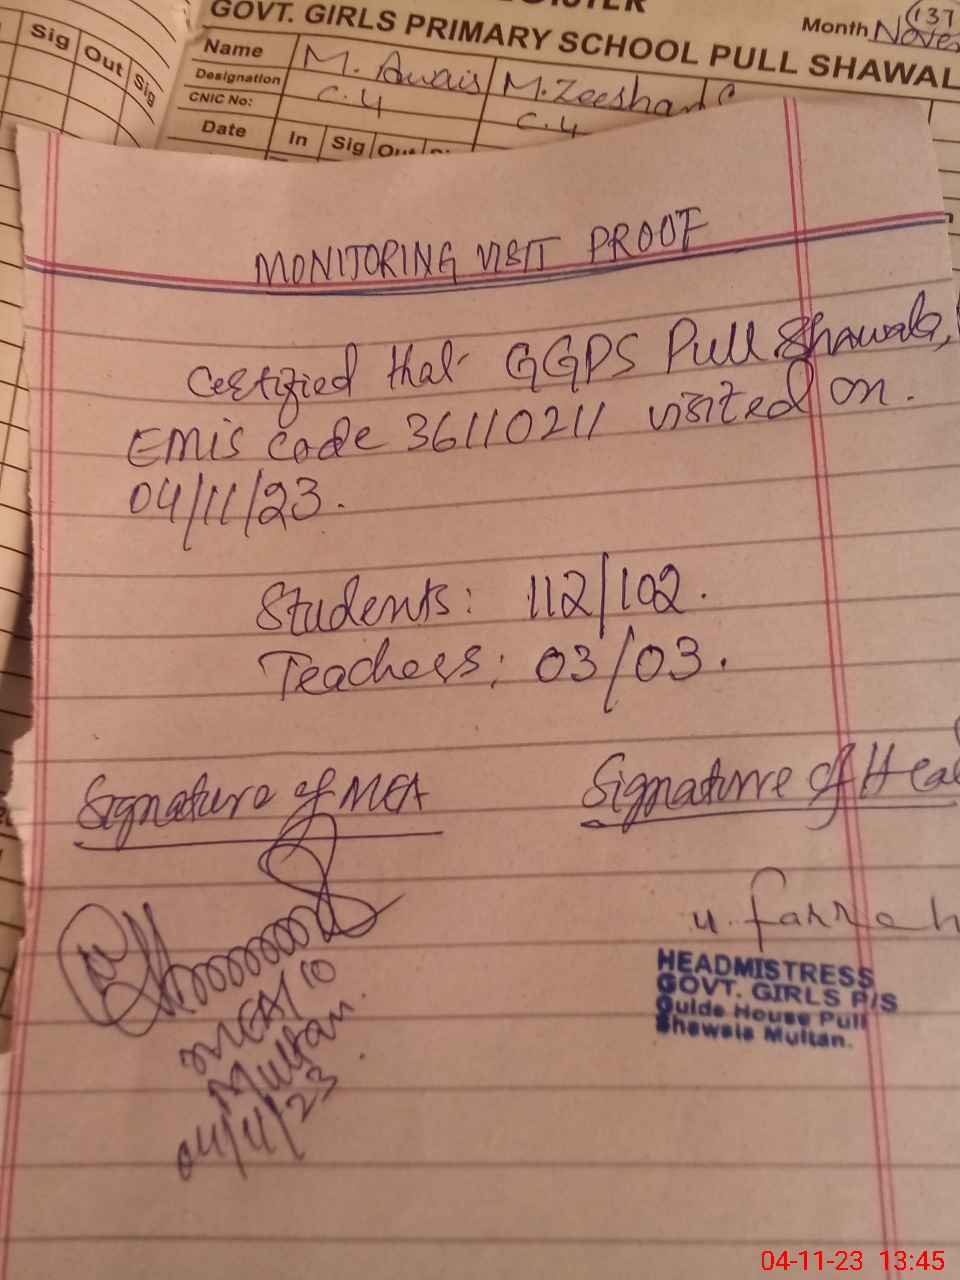 GOVT. GIRLS PRIMARY SCHOOL PULL SHAWAL
Month Nove
137
Name M. Awais M. Zeeshan
Designation C.4 C.4
CNIC No:
Date In Sig Out
Sig Out Sig
MONITORING VISIT PROOF
Certified that GGPS Pull Shawala,
EMIS Code 36110211 visited on.
04/11/23.
Students: 112/102.
Teachers: 03/03.
Signature of MEA Signature of Hea
u. farrah
HEADMISTRESS
GOVT. GIRLS P/S
Guide House Pull
Shawala Multan.
MEA/10
Multan.
04/11/23
04-11-23 13:45